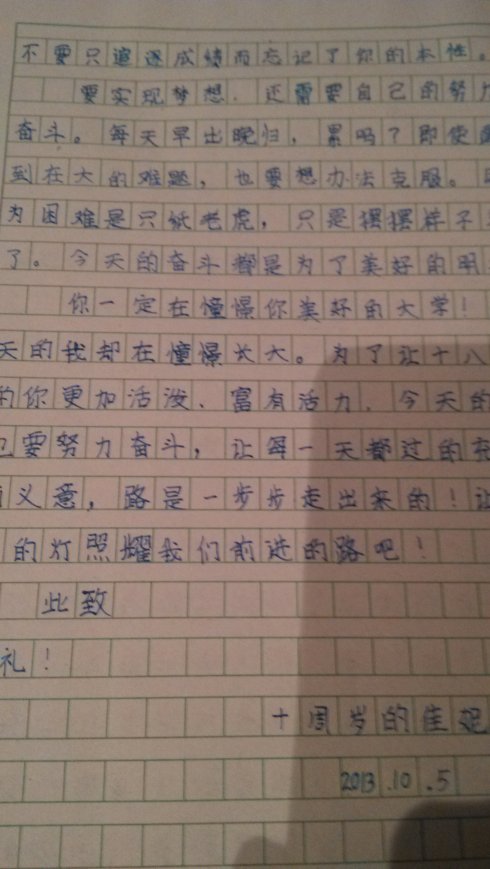 不要只追逐成绩而忘记了你的本性。
要实现梦想、还需要自己的努力
奋斗。每天早出晚归，累吗？即使
到在大的难题，也要想办法克服。
为困难是只纸老虎，只是摆摆样子
了。今天的奋斗都是为了美好的明
你一定在憧憬你美好的大学！
天的我却在憧憬长大。为了让十八
的你更加活泼、富有活力、今天的
也要努力奋斗，让每一天都过的充
义意，路是一步步走出来的！让
的灯照耀我们前进的路吧！
此致
礼！
十周岁的佳妮
2013.10.5